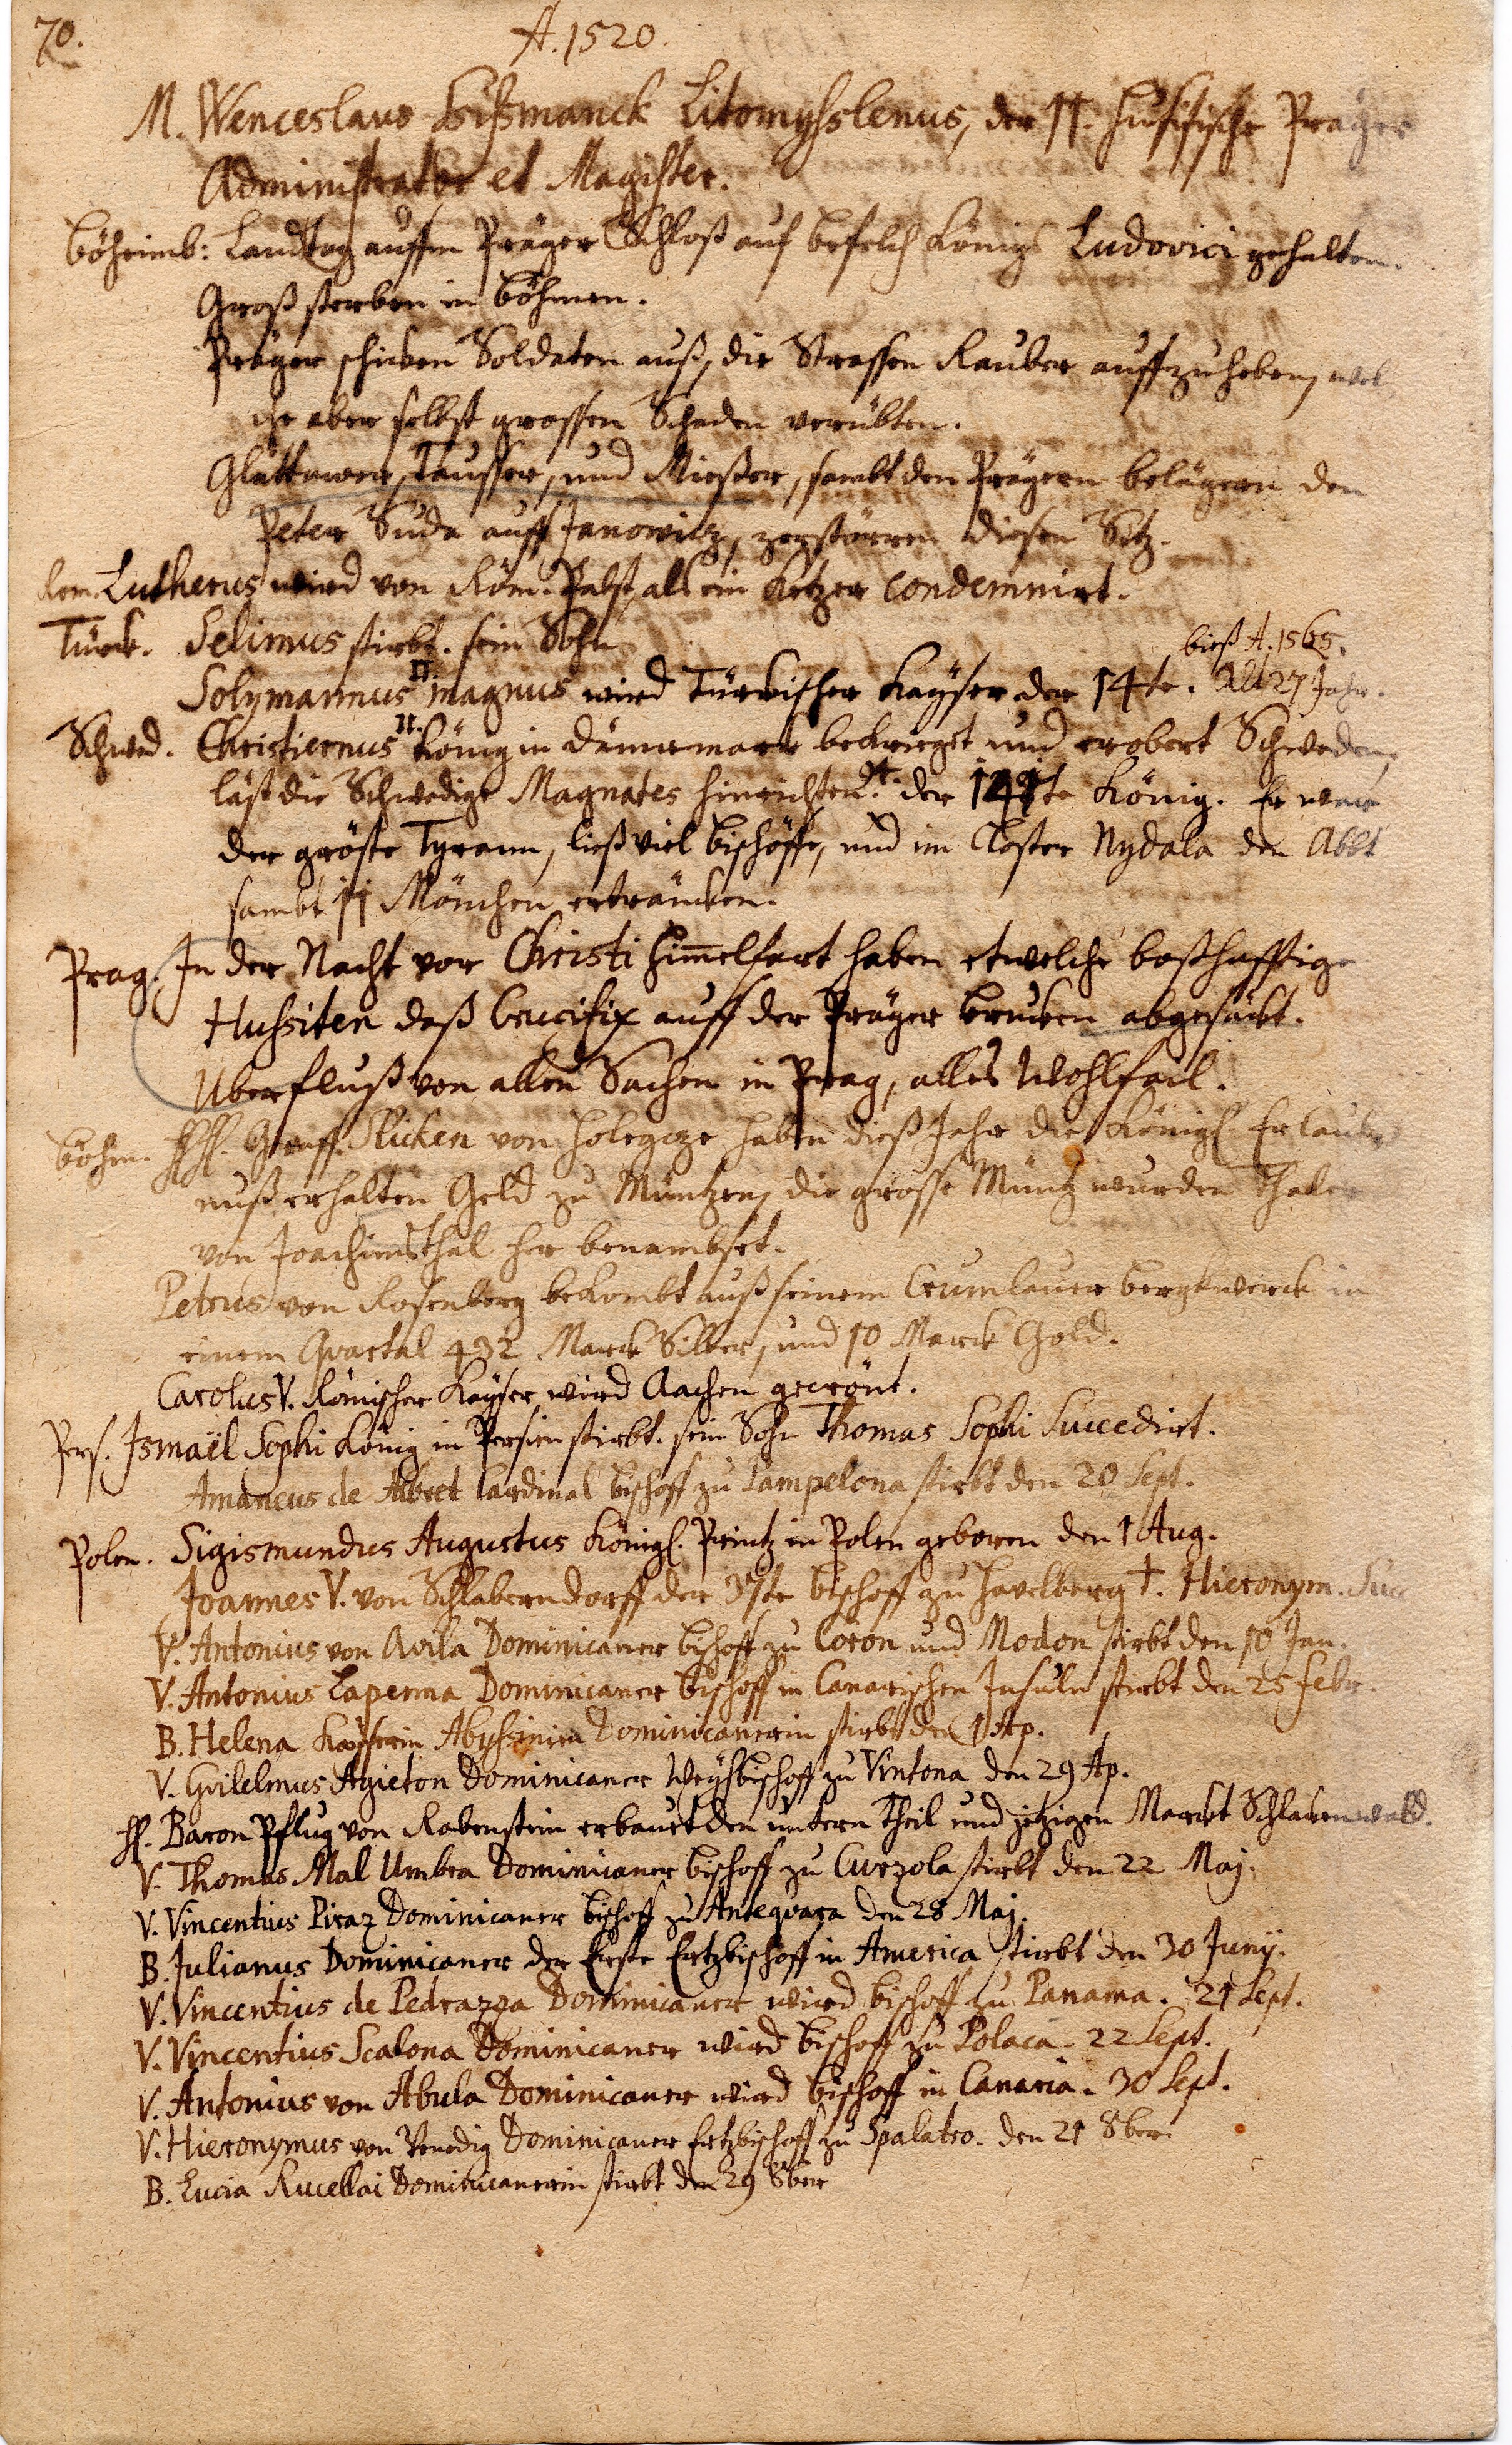 70.
A. 1520.
M. Wenceslaus Lißmanck Litomyslenus, der 11. Husitische Prager
Administrator et Magister.
Böheimb: Landtag auffm Präger Schloß auf befelch Königs Ludovici gehalten.
Groß sterben in Böhmen.
Präger schicken Soldaten auß, die Strassen Rauber auffzuheben, wel
che aber selbst grossen Schaden verübten.
Glattawer, Tausser, und Mießer, sambt den Prägern belägern den
Peter Suda auff Janowitz, zerstörren diesen Sitz.
Rom. Lutherus wird von Röm. Pabst als ein Ketzer condemnirt.
Türck. Selimus stirbt. sein Sohn
bieß A. 1565.
Solymannus II. magnus wird Türckischer Kayser der 14te. Alt 27 Jahr.
Schwed. Christiernus II. König in Dännemark bekrieget und erobert Schweden,
läst die Schwedige Magnates hinrichten. der König. Er war
der gröste Tyrann, ließ viel Bischöffe, und im Closter Nydala den Abbt
sambt 11 Mönchen erträncken.
Prag. In der Nacht vor Christi Himmelfart haben etwelche boßhafftige
Hussiten daß Crucifix auff der Präger Brucken abgesäckt.
Uberfluß von allen Sachen in Prag, alles Wohlfeil.
Böhm. HH. Graff. Slicken von Holegcze haben dieß Jahr die Königl. Erlaub
nuß erhalten Geld zu Müntzen, die grosse Müntz wurden Thaler
von Joachimsthal her benambset.
Petrus von Rosenberg bekombt auß seinem Crumlauer bergkwerck in
einem Quartal 432 Marck Silber, und 10 Marck Gold.
Carolus V. Römischer Kayser wird Aachen gecrönt.
Pers. Ismaël Sophi König in Persien stirbt. sein Sohn Thomas Sophi Succedirt.
Amancus de Albret Cardinal Bischoff zu Pampelona stirbt den 20 Sept.
Polen. Sigismundus Augustus Königl. Printz in Polen geboren den 1 Aug.
Joannes V. von Schlaberndorff der 37te Bischoff zu Havelberg †. Hieronym. Suc
V. Antonius von Avila Dominicaner Bischoff zu Coron und Modon stirbt den 10 Jan.
V. Antonius Laperma Dominicaner Bischoff in Canarischen Insuln stirbt den 25 Febr.
B. Helena Kayserin Abyssinien Dominicanerin stirbt den 1 Ap.
V. Gvilelmus Agieton Dominicaner Weyhbischoff zu Vintona den 29 Ap.
H. Baron Pflug von Rabenstein erbauet den untern Theil und jetzigen Marckt Schlackenwald.
V. Thomas Mal Umbra Dominicaner Bischoff zu Curzola stirbt den 22 Maj.
V. Vincentius Piraz Dominicaner Bischoff zu Antequara den 28 Maj.
B. Julianus Dominicaner der Erste Ertzbischoff in America stirbt den 30 Junij.
V. Vincentius de Pedrazza Dominicaner wird Bischoff zu Panama. 21 Sept.
V. Vincentius Scalona Dominicaner wird Bischoff zu Polaca. 22 Sept.
V. Antonius von Abula Dominicaner wird Bischoff in Canaria. 30 Sept.
V. Hieronymus von Venedig Dominicaner Ertzbischoff zu Spalatro. den 21 8ber.
B. Lucia Rucellai Dominicanerin stirbt den 29 8ber